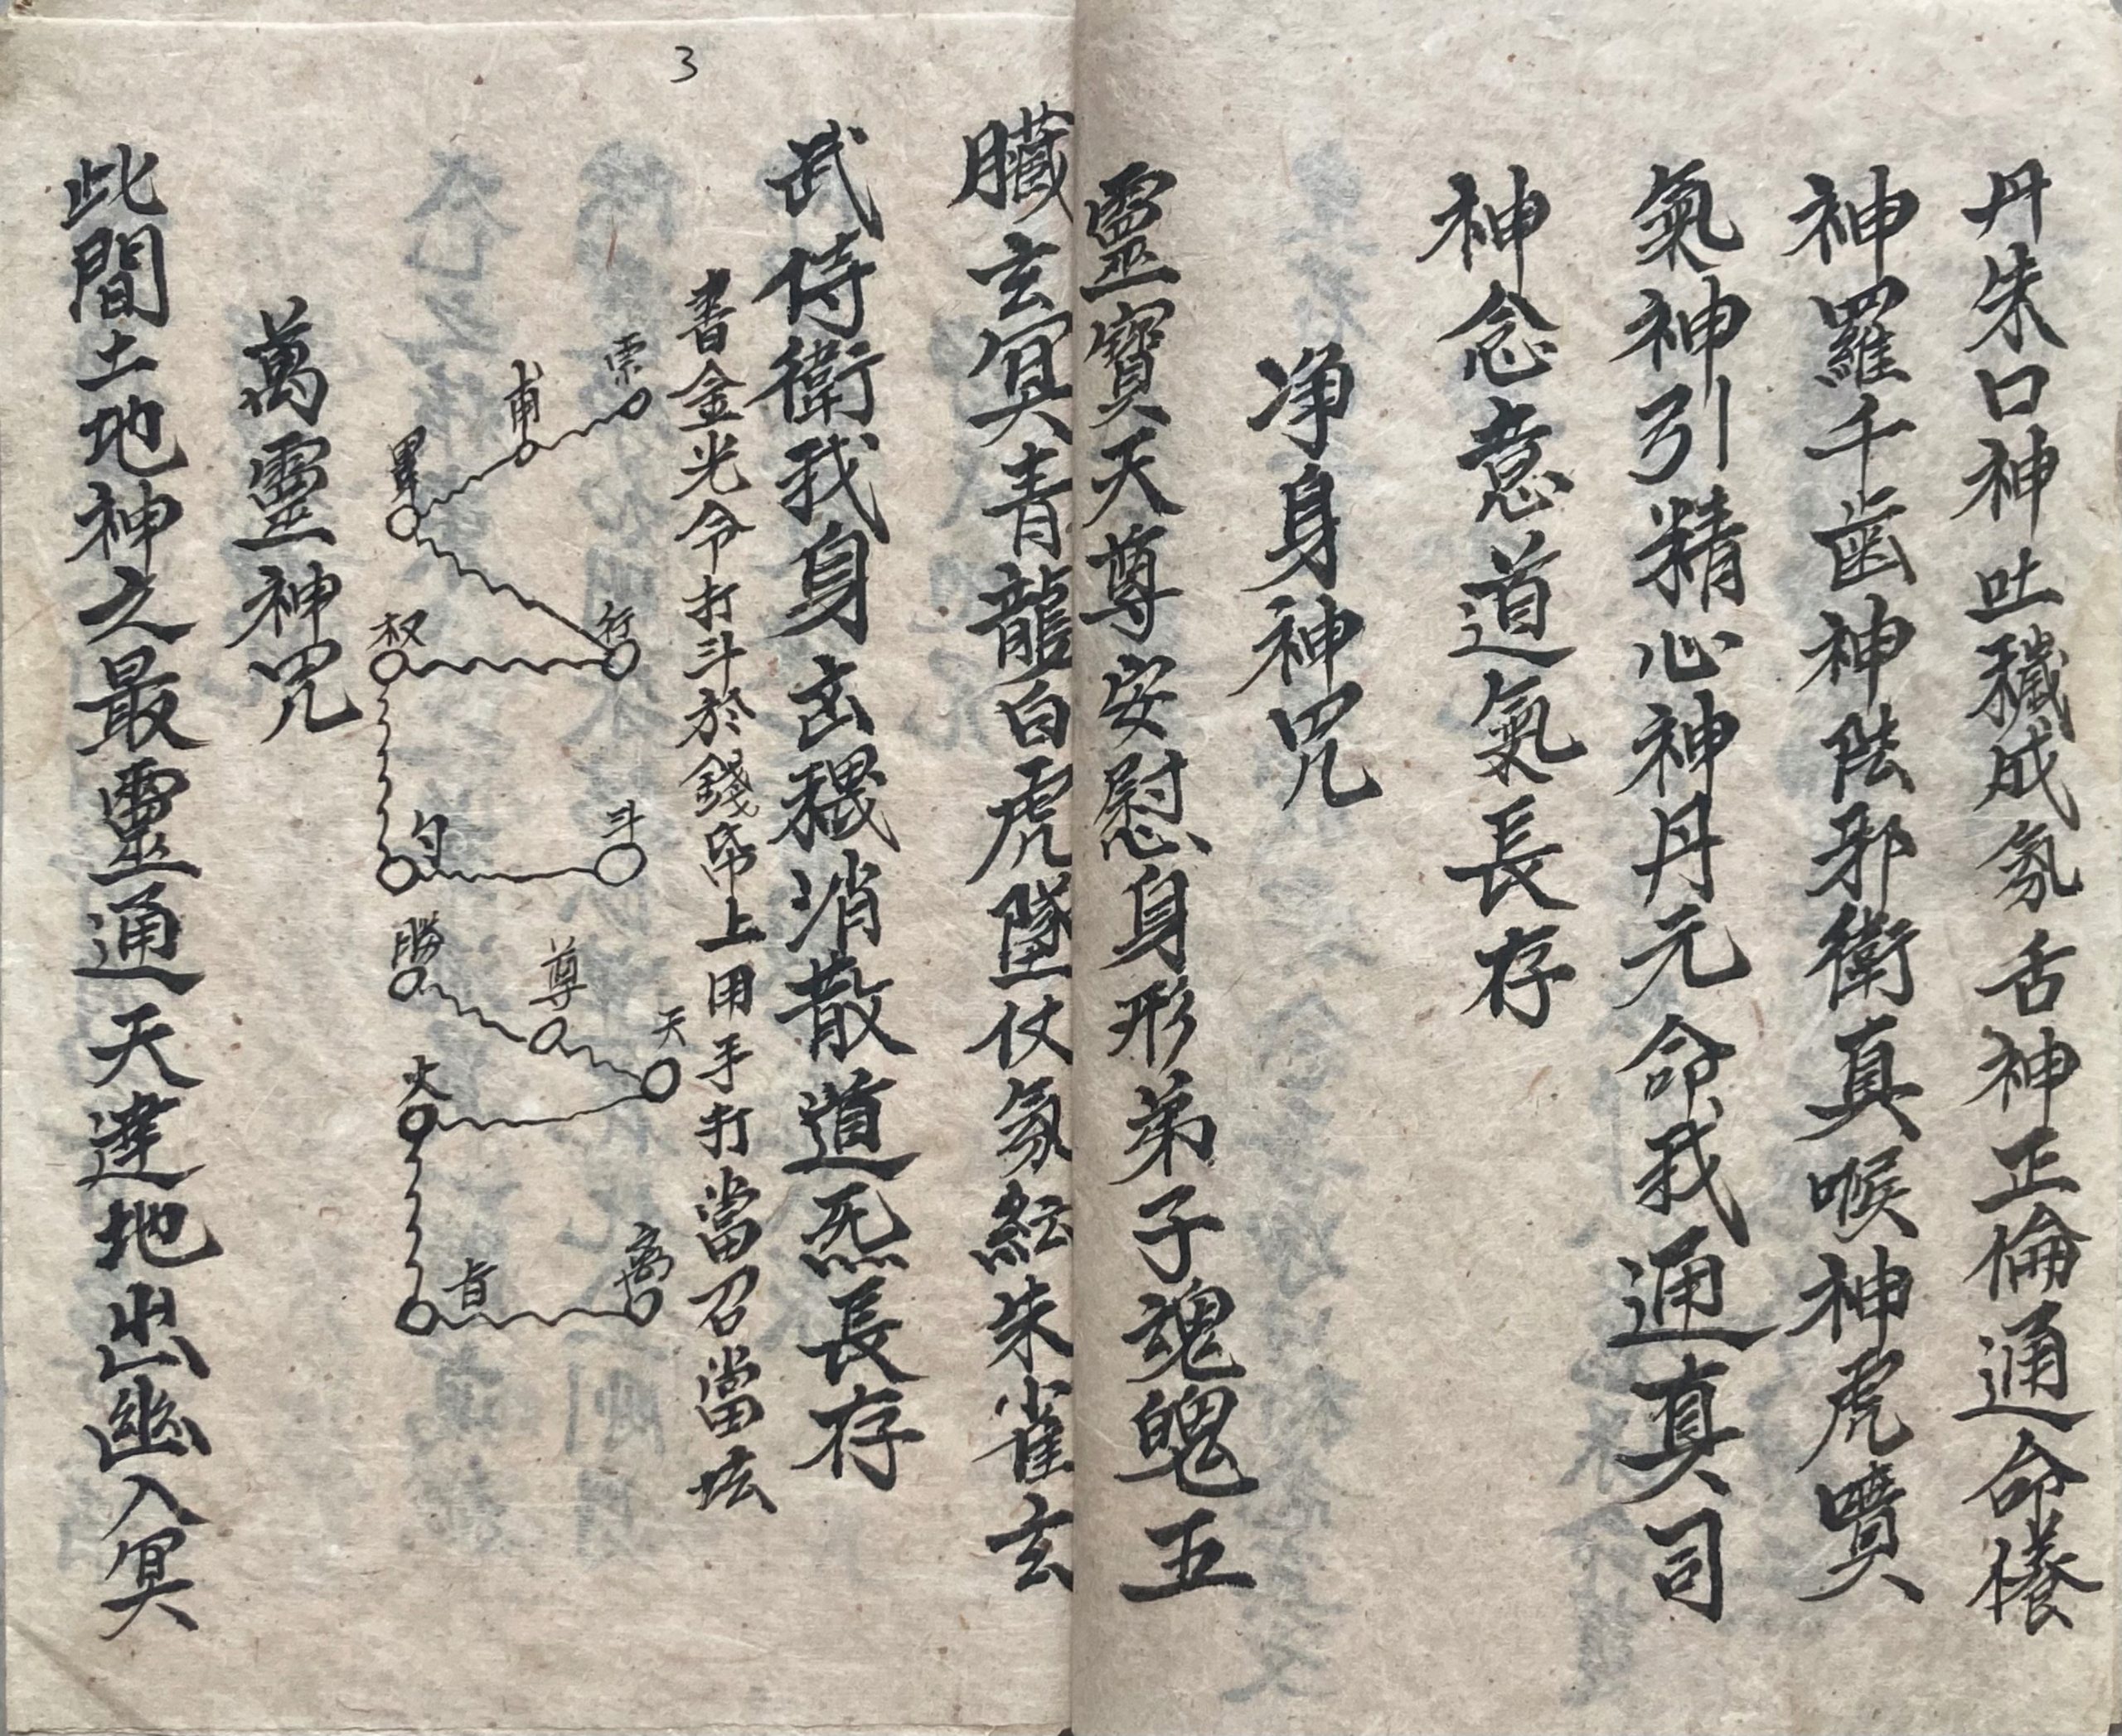 丹朱口神吐穢成氛舌神正倫通命
神羅千齒神陞邪衛真喉神虎噴
氣神引精心神丹元命我通真司
神念意道氣長存
净身神咒
靈寶天尊安慰身形弟子魂魄五
臟玄冥青龍白虎墜仗氛紜朱雀玄
武侍衛我身凶穢消散道炁長存
書金光令打斗於錢帋上用手打當召當坛
3
票
甫
畢
竹
权
勺
斗
勝
尊
天
大
旨
高
萬靈神咒
此間土地神之最靈通天達地出幽入冥